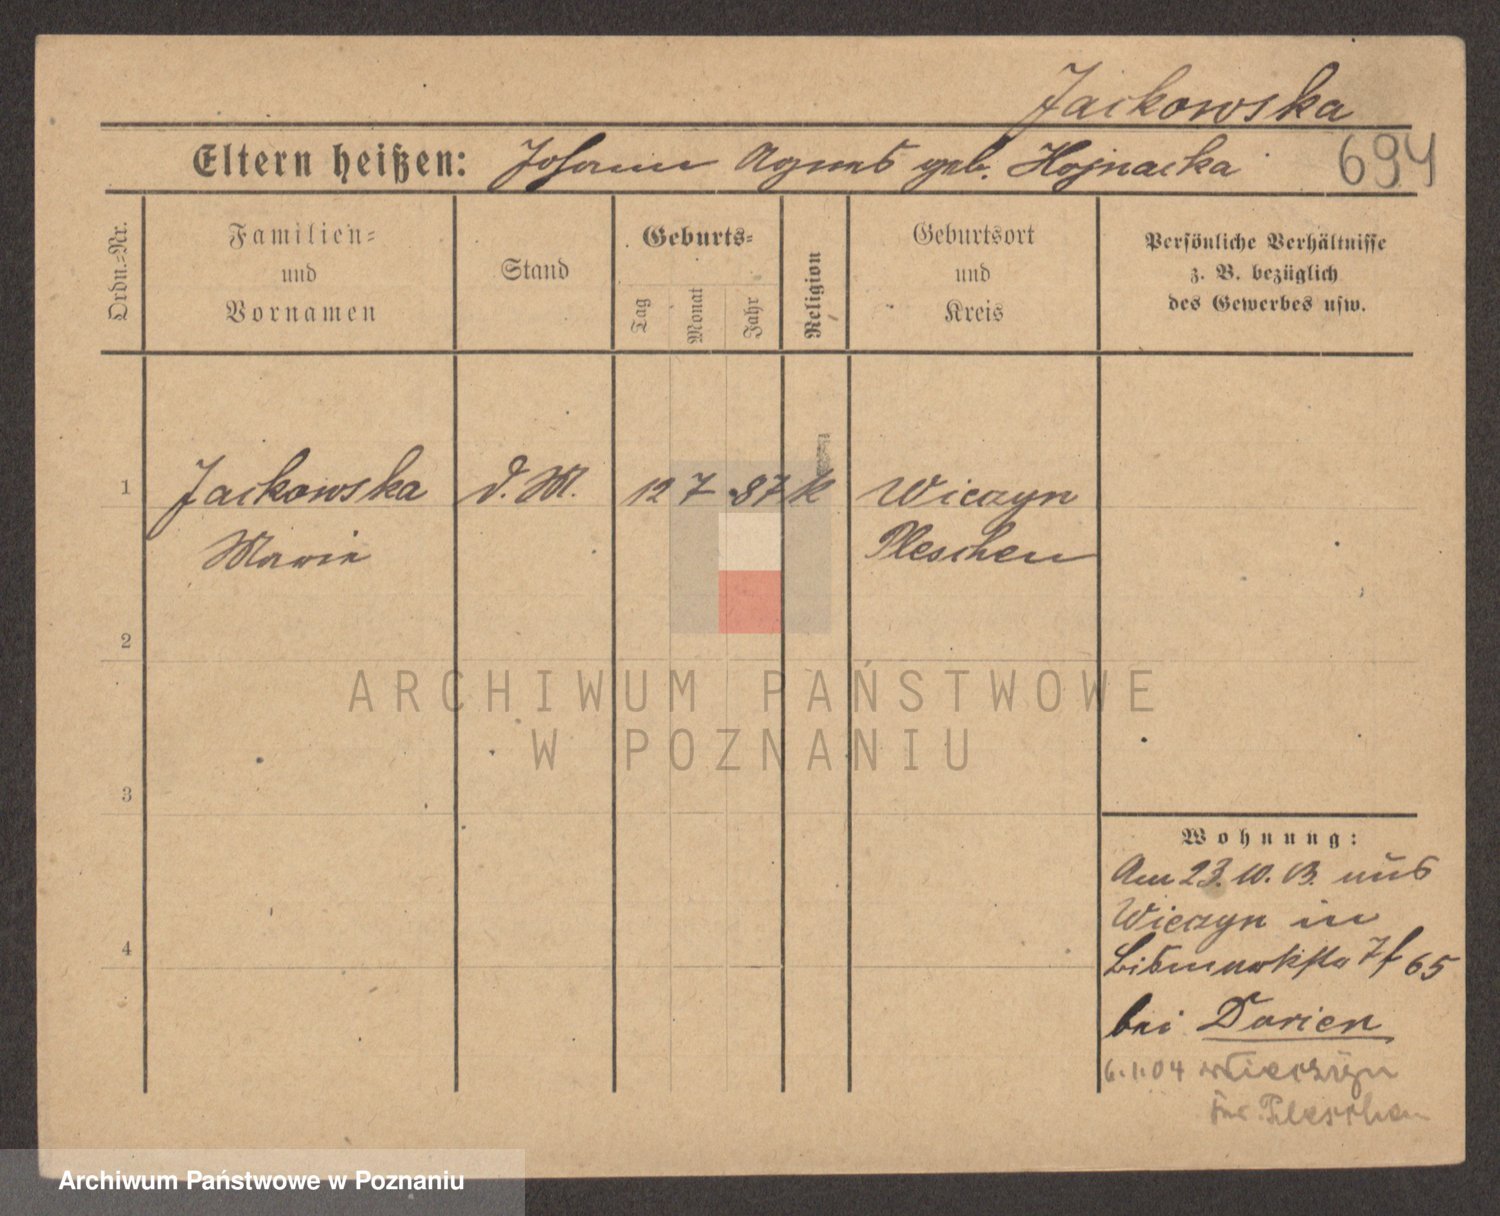 Jackowska
Eltern heißen: Johann Agnes geb. Hojnacka 694
Ordn.-Nr.
Familien-
und
Vornamen
Stand
Geburts-
Tag
Monat
Jahr
Religion
Geburtsort
und
Kreis
Persönliche Verhältnisse
z. B. bezüglich
des Gewerbes usw.
1 Jackowska d. M. 12 7 87 k Wieczyn
Marie Pleschen
2
3
4
Wohnung:
Am 23. 10. 03. aus
Wieczyn in
65
bei Darien
6.1.04 Wieczyn
Pleschen
ARCHIWUM PAŃSTWOWE
W POZNANIU
Archiwum Państwowe w Poznaniu